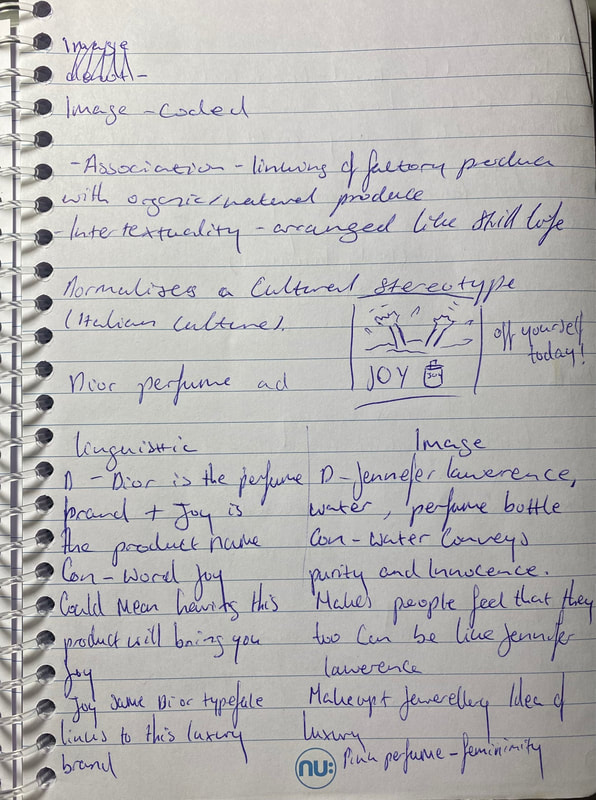 Image - coded
- Association - linking of factory produce
with organic/natural produce
- Intertextuality - arranged like still life
Normalises a Cultural stereotype
(Italian Culture).
JOY
JOY
off yourself
today!
Dior perfume ad
linguistic
D - Dior is the perfume
brand + Joy is
the product name
Con - Word Joy
Could Mean having this
product will bring you
Joy
Joy same Dior typeface
links to this luxury
brand
Image
D - Jennefer lawerence,
water, perfume bottle
Con - Water Conveys
purity and Innocence.
Makes people feel that they
too Can be like Jennifer
lawerence
Makeup + Jewerellery Idea of
luxury
Pink perfume - feminimity
nu: